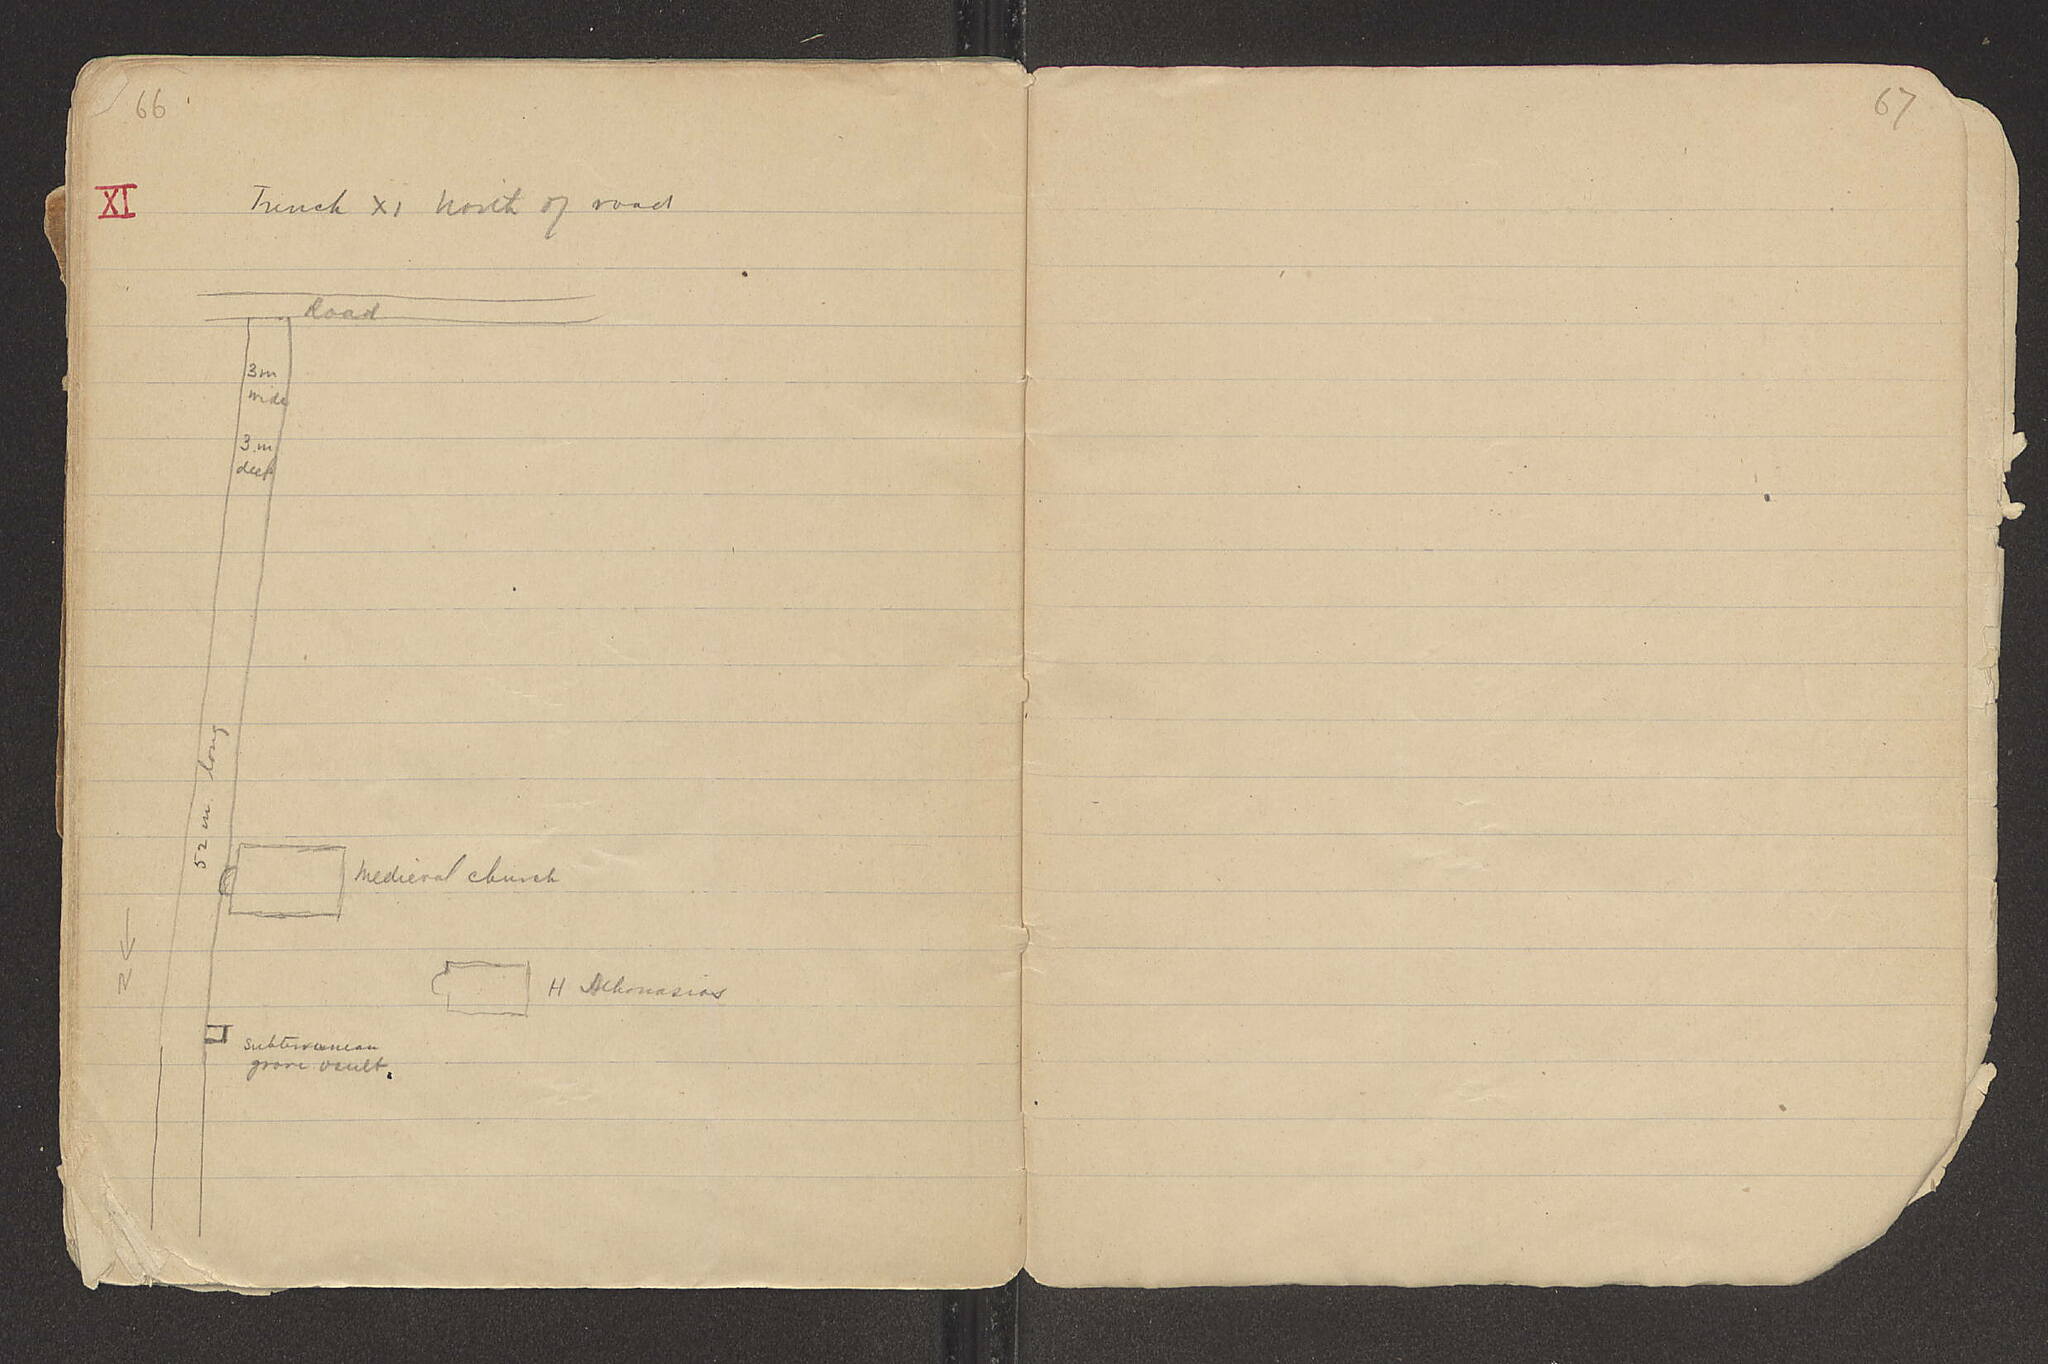 66
67
XI
Trench XI North of road
Road
3m
wide
3 m
deep
52 m long
Medieval church
N
H Athonasios
subterranean
grave vault.